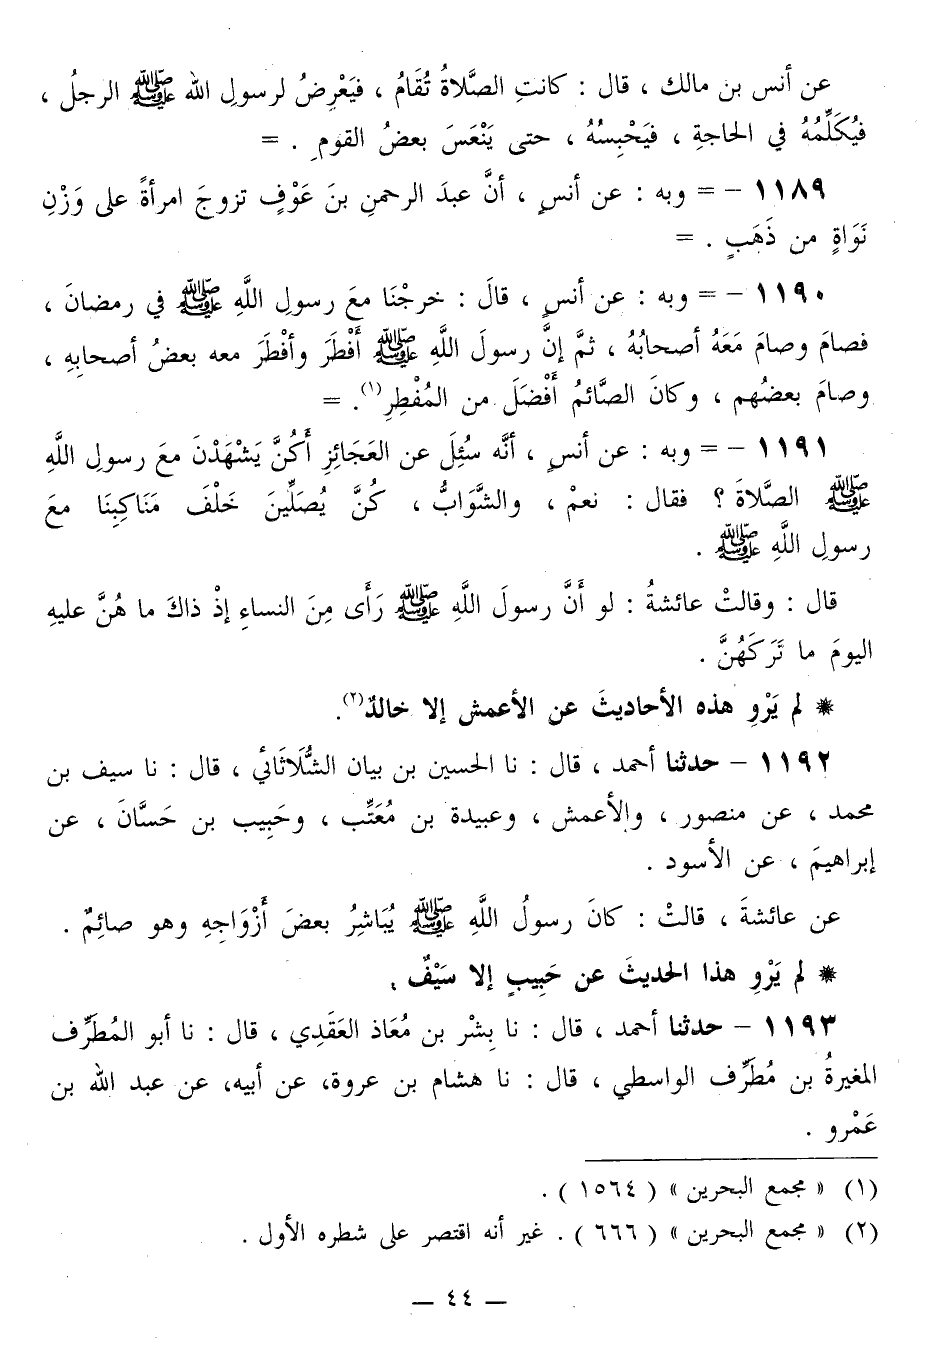 عن أنس بن مالك ، قال : كانتِ الصَّلاةُ تُقَامُ ، فيَعْرِضُ لرسولِ الله ﷺ الرجلُ ،
فيُكَلِّمُهُ في الحاجةِ ، فيَحْبِسُهُ ، حتى يَنْعَسَ بعضُ القومِ . =
١١٨٩ – = وبه : عن أنسٍ ، أنَّ عبدَ الرحمنِ بنَ عَوْفٍ تزوجَ امرأةً على وَزْنِ
نَوَاةٍ من ذَهَبٍ . =
١١٩٠ – = وبه : عن أنسٍ ، قالَ : خرجْنَا معَ رسولِ اللَّهِ ﷺ في رمضانَ ،
فصامَ وصامَ مَعَهُ أصحابُهُ ، ثمَّ إنَّ رسولَ اللَّهِ ﷺ أَفْطَرَ وأفْطَرَ معه بعضُ أصحابِهِ ،
وصامَ بعضُهم ، وكانَ الصَّائمُ أَفْضَلَ من المُفْطِرِ(١). =
١١٩١ – = وبه : عن أنسٍ ، أنَّه سُئِلَ عن العَجَائِزِ أَكُنَّ يَشْهَدْنَ معَ رسولِ اللَّهِ
ﷺ الصَّلاةَ ؟ فقال : نعمْ ، والشَّوَابُّ ، كُنَّ يُصَلِّينَ خَلْفَ مَنَاكِبِنَا معَ
رسولِ اللَّهِ ﷺ .
قال : وقالتْ عائشةُ : لو أَنَّ رسولَ اللَّهِ ﷺ رَأَى مِنَ النساءِ إذْ ذاكَ ما هُنَّ عليهِ
اليومَ ما تَرَكَهُنَّ .
* لم يَرْوِ هذه الأحاديثَ عن الأعمشِ إلا خالدٌ(٢).
١١٩٢ – حدثنا أحمد ، قال : نا الحسين بن بيان الشُّلَاثَائي ، قال : نا سيف بن
محمد ، عن منصور ، والأعمش ، وعبيدة بن مُعَتِّب ، وحَبِيب بن حَسَّانَ ، عن
إبراهيمَ ، عن الأسود .
عن عائشةَ ، قالتْ : كانَ رسولُ اللَّهِ ﷺ يُبَاشِرُ بعضَ أَزْوَاجِهِ وهو صائِمٌ .
* لم يَرْوِ هذا الحديثَ عن حَبِيبٍ إلا سَيْفٌ .
١١٩٣ – حدثنا أحمد ، قال : نا بِشْر بن مُعَاذ العَقَدِي ، قال : نا أبو المُطَرِّف
المغيرةُ بن مُطَرِّف الواسطي ، قال : نا هشام بن عروة، عن أبيه، عن عبد الله بن
عَمْرو .
(١) « مجمع البحرين » ( ١٥٦٤ ) .
(٢) « مجمع البحرين » ( ٦٦٦ ) . غير أنه اقتصر على شطره الأول .
– ٤٤ –